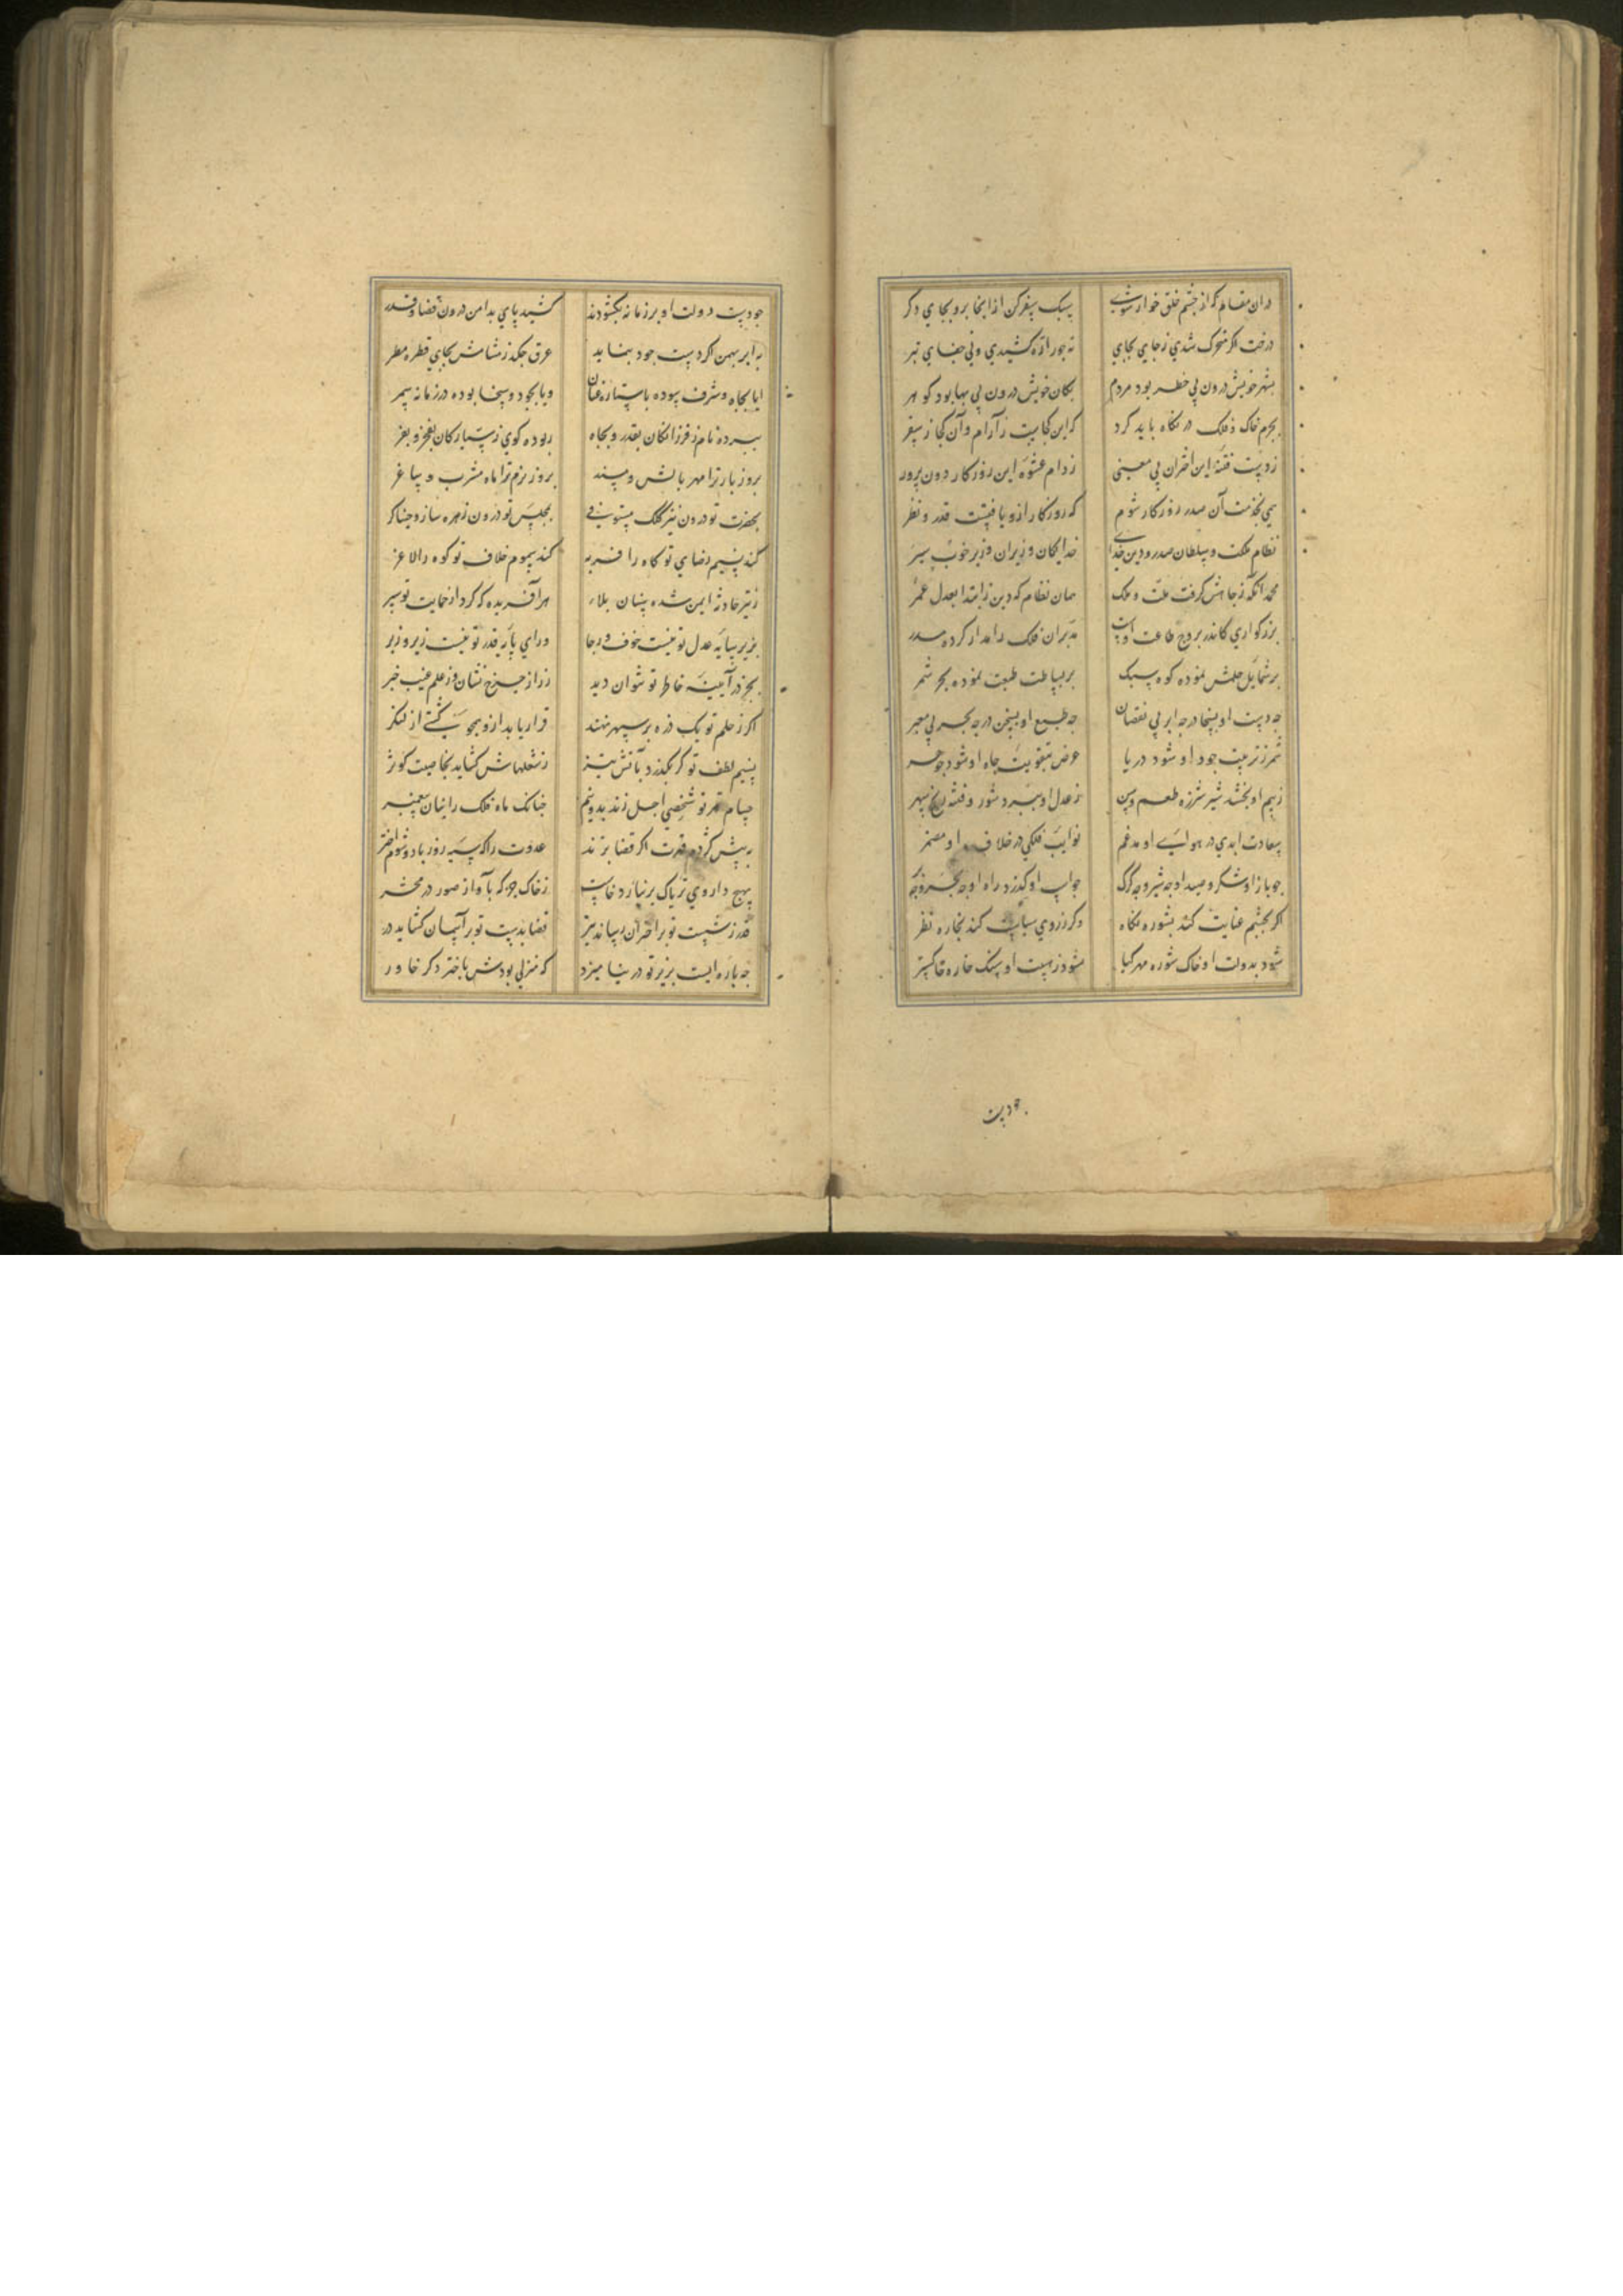 دران مقام که از چشم خلق خوار شوی سبک سفر کن ازانجا برو بجای دکر
درخت اکر متحرک شدی ز جای بجای نه جور اره کشیدی و نی جفای تبر
بشهر خویش درون بی خطر بود مردم بکان خویش درون بی بها بود کوهر
بجرم خاک و فلک در نکاه باید کرد که این کجاست ز آرام و آن کجا ز سفر
ز دست فتنه این اختران بی معنی ز دام عشوه این روزکار دون پرور
همی بخدمت آن صدر روزکار شوم که روزکار ازو یافتست قدر و نظر
نظام ملکت و سلطان صدر و دین خدای خدایکان وزیران وزیر خوب سیر
محمد انکه ز جاهش کرفت ملت و ملک همان نظام که دین ز ابتدا بعدل عمر
بزرکواری کاندر بروج طاعت اوست مدبران فلک را مدار کرده مدر
بر شمایل حلمش نموده کوه سبک بر لطافت طبعت نموده بحر شمر
چه دست او بسخا در چه ابر بی نقصان چه طبع او بسخن در چه بحر بی معبر
ثمر ز تربیت جود او شود دریا عرض بتقویت جاه او شود جوهر
ز بیم او بخشد شیر شرزه طعم وسن ز عدل او ببرد شور و فتنه رنج سهر
سعادت ابدی در هوای او مدغم نوایب فلکی در خلاف او مضمر
چو باز او شکرد صید او چه شیر و چه کرک چو اسب او کذرد راه او چه بحر و چه بر
اکر بچشم عنایت کند بشوره نکاه وکر ز روی سیاست کند بخاره نظر
شود بدولت او خاک شوره مهر کیا شود ز هیبت او سنک خاره خاکستر
چو دست
چو دست دولت او بر زمانه بکشودند کشید پای بدامن درون قضا و قدر
به ابر بهمن اکر دست جود بنماید عرق چکد ز مسامش بجای قطره مطر
ایا بجاه و شرف سوده با ستاره عنان ویا بجود و سخا بوده در زمانه سمر
ببرده نام ز فرزانکان بقدر و بجاه ربوده کوی ز سیارکان بفخر و بفر
بروز بار ترا مهر بالش و مسند بروز بزم ترا ماه مشرب و ساغر
بحضرت تو درون تیر کلک مستوفی بمجلس تو درون زهره ساز و خنیاکر
کند نسیم رضای تو کاه را فربه کند سموم خلاف تو کوه را لاغر
ز تیر حادثه ایمن شد و سنان بلا هر آفریده که کرد از حمایت تو سپر
بزیر سایه عدل تو نیست خوف و رجا ورای پایه قدر تو نیست زیر و زبر
بجز در آینه خاطر تو نتوان دید ز راز چرخ نشان و ز علم غیب خبر
اکر ز حلم تو یک ذره بر سپهر نهند قرار یابد ازو همچو کشتی از لنکر
نسیم لطف تو کر بکذرد بآتش تیز ز شعلهاش کشاید بخاصیت کوثر
حسام قهر تو شخصی اجل زند بدو نیم چنانک ماه فلک را بنان پیغمبر
به پیش کژدم قهرت اکر قضا بزند عدوت را که سیه روز باد و شوم اختر
بهیچ داروی تریاک برنیارد خاست ز خاک جز که بآواز صور در محشر
قدر ز شست تو بر اختران رساند تیر قضا بدست تو بر آسمان کشاید در
چه باره ایست بزیر تو در بنامیزد که منزلی بودش باختر دکر خاور